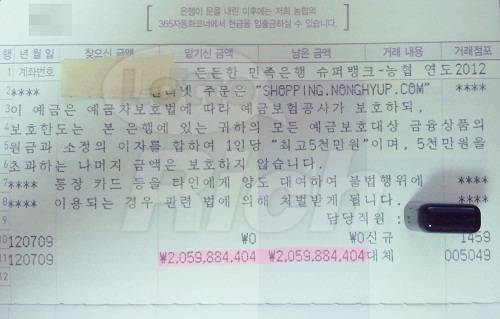 은행이 문을 내린 이후에는 저희 농협의
365자동화코너에서 현금을 입출금하실 수 있습니다.
행 년월일 찾으신 금액 맡기신 금액 남은 금액 거래 내용 거래점포
1 계좌번호 든든한 민족은행 슈퍼뱅크-농협 연도2012
2 **** 인터넷 주문은 "SHOPPING.NONGHYUP.COM" ****
이 예금은 예금자보호법에 따라 예금보험공사가 보호하되,
보호한도는 본 은행에 있는 귀하의 모든 예금보호대상 금융상품의
원금과 소정의 이자를 합하여 1인당 "최고5천만원"이며, 5천만원을
초과하는 나머지 금액은 보호하지 않습니다.
7 **** 통장 카드 등을 타인에게 양도 대여하여 불법행위에 ****
8 **** 이용되는 경우 관련 법에 의해 처벌받게 됩니다. ****
담당직원 :
10 120709 ₩0 ₩0신규 1459
11 120709 ₩2,059,884,404 ₩2,059,884,404 대체 005049